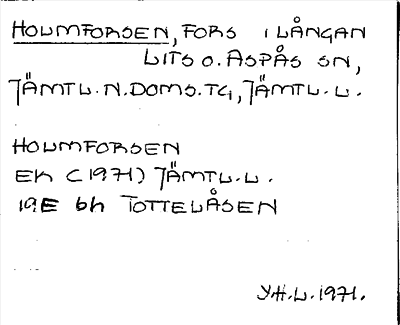 HOLMFORSEN, FORS I LÅNGAN
LITS O. ASPÅS SN,
JÄMTL. N. DOMS. TG, JÄMTL. L.
HOLMFORSEN
EK (1971) JÄMTL. L.
19E 6h TOTTELÅSEN
Y.H.L. 1971.